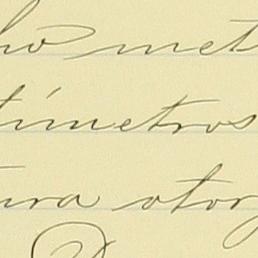 ho met
tímetros
ura otor